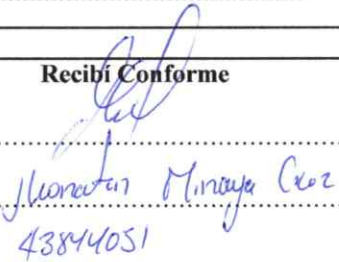 Recibí Conforme
Jhonatan Minaya Cruz
43844051